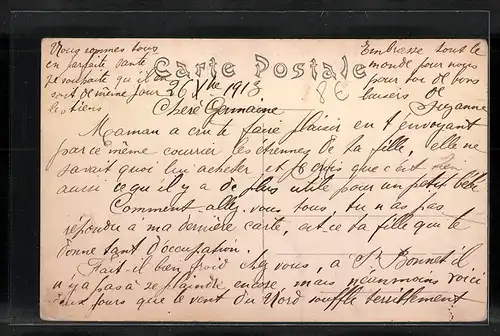 Vous sommes tous
en parfaite santé
je souhaite qu'il en
soit de même pour
les tiens
Embrasse tout le
monde pour nous
pour toi de bons
baisers de
Suzanne
Carte Postale
26 Xbre 1913
8E
Chère Germaine
Maman a cru te faire plaisir en t'envoyant
par ce même courrier les étrennes de ta fille, elle ne
savait quoi lui acheter et je crois que c'est bien
aussi ce qu'il y a de plus utile pour un petit bébé
Comment allez-vous tous, tu n'as pas
répondu a ma dernière carte, est ce ta fille qui te
donne tant d'occupation.
Fait-il bien froid chez vous, a St Bonnet il
n'y a pas à se plaindre encore mais néanmoins voici
deux jours que le vent du Nord souffle terriblement